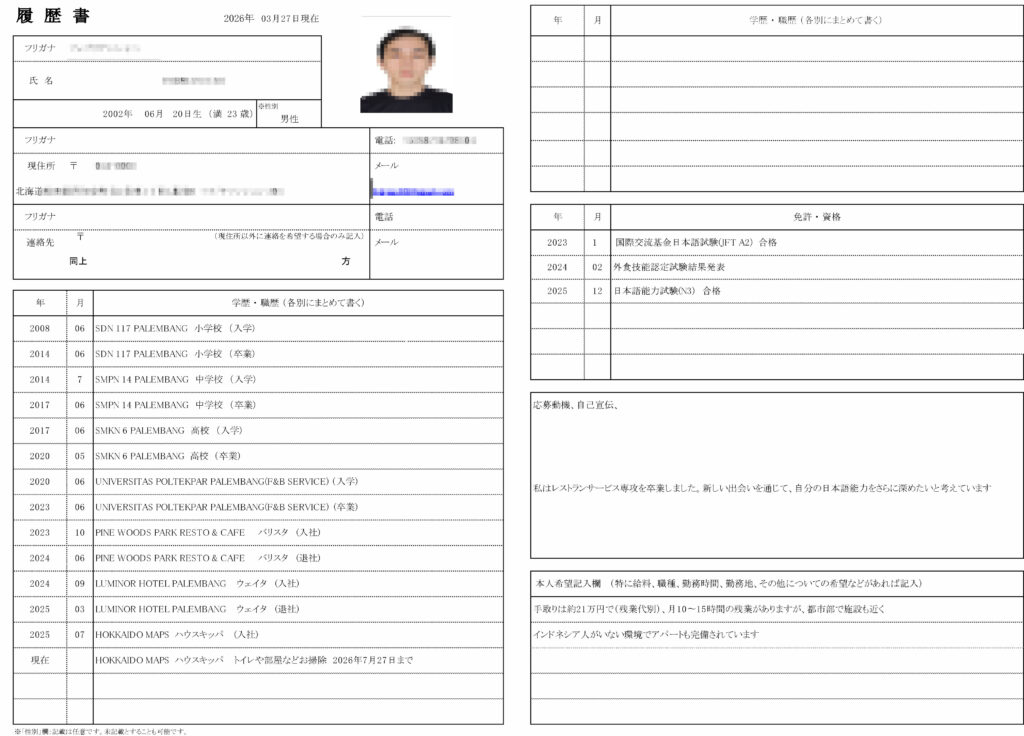 履歴書
2026年 03月27日現在
フリガナ
氏 名
2002年 06月 20日生 (満 23 歳)
※性別
男性
フリガナ
電話:
現住所 〒
メール
北海道
フリガナ
電話
連絡先 〒
(現住所以外に連絡を希望する場合のみ記入)
メール
同上 方
年 月 学歴・職歴 (各別にまとめて書く)
2008 06 SDN 117 PALEMBANG 小学校 (入学)
2014 06 SDN 117 PALEMBANG 小学校 (卒業)
2014 7 SMPN 14 PALEMBANG 中学校 (入学)
2017 06 SMPN 14 PALEMBANG 中学校 (卒業)
2017 06 SMKN 6 PALEMBANG 高校 (入学)
2020 05 SMKN 6 PALEMBANG 高校 (卒業)
2020 06 UNIVERSITAS POLTEKPAR PALEMBANG(F&B SERVICE) (入学)
2023 06 UNIVERSITAS POLTEKPAR PALEMBANG(F&B SERVICE) (卒業)
2023 10 PINE WOODS PARK RESTO & CAFE バリスタ (入社)
2024 06 PINE WOODS PARK RESTO & CAFE バリスタ (退社)
2024 09 LUMINOR HOTEL PALEMBANG ウェイタ (入社)
2025 03 LUMINOR HOTEL PALEMBANG ウェイタ (退社)
2025 07 HOKKAIDO MAPS ハウスキッパ (入社)
現在 HOKKAIDO MAPS ハウスキッパ トイレや部屋などお掃除 2026年7月27日まで
※「性別」欄：記載は任意です。未記載とすることも可能です。
年 月 学歴・職歴 (各別にまとめて書く)
年 月 免許・資格
2023 1 国際交流基金日本語試験(JFT A2) 合格
2024 02 外食技能認定試験結果発表
2025 12 日本語能力試験(N3) 合格
応募動機、自己宣伝、
私はレストランサービス専攻を卒業しました。新しい出会いを通じて、自分の日本語能力をさらに深めたいと考えています
本人希望記入欄 (特に給料、職種、勤務時間、勤務地、その他についての希望などがあれば記入)
手取りは約21万円で(残業代別)、月10～15時間の残業がありますが、都市部で施設も近く
インドネシア人がいない環境でアパートも完備されています